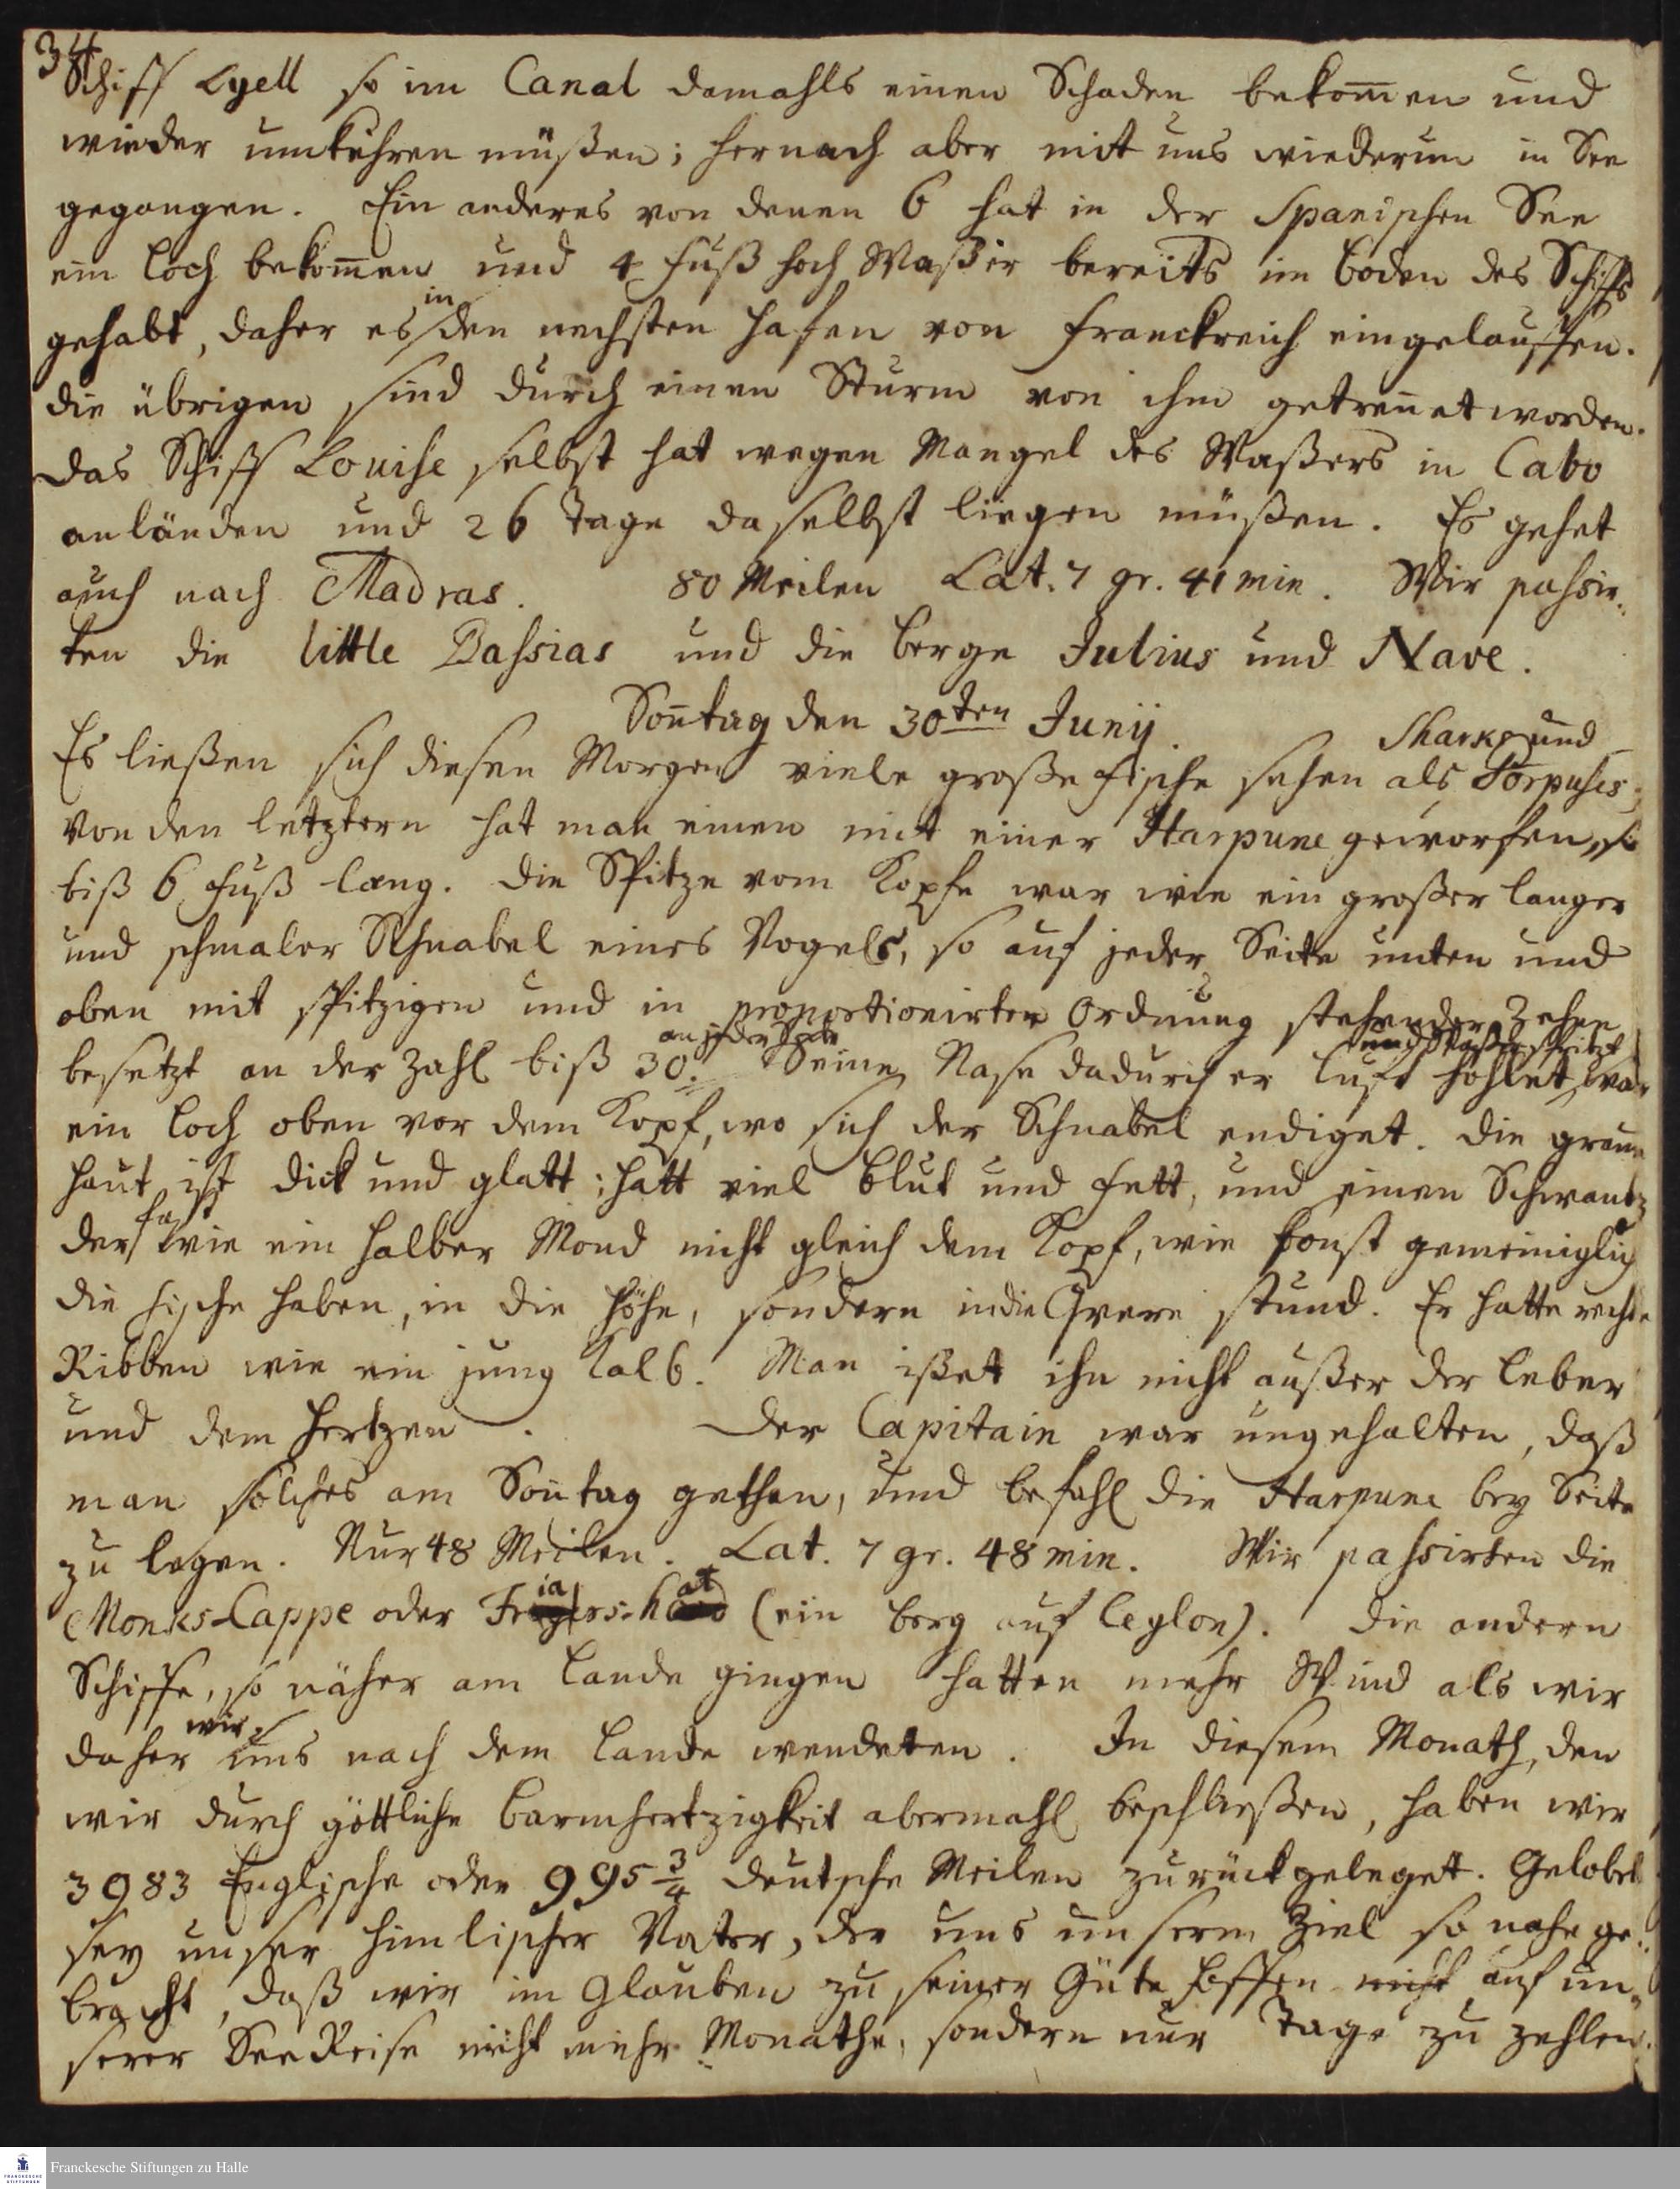 34
Schiff Lyell so im Canal damahls einen Schaden bekom̄en und
wieder umkehren müßen; hernach aber mit uns wiederum in See
gegangen. Ein anderes von denen 6 hat in der Spanischen See
ein Loch bekom̄en und 4 Fuß hoch Waßer bereits im Boden des Schiffs
gehabt, daher es in den nechsten Hafen von Franckreich eingelauffen.
die übrigen sind durch einen Sturm von ihm getren̄et worden.
Das Schiff Louise selbst hat wegen Mangel des Waßers in Cabo
anländen und 26 Tage daselbst liegen müßen. Es gehet
auch nach Madras. 80 Meilen Lat. 7 gr. 41 min. Wir passir-
ten die little Bassias und die Berge Julius und Nave.
Son̄tag den 30ten Junij.
Es ließen sich diesen Morgen viele große Fische sehen als Sharks und Porpuses;
Von den letztern hat man einen mit einer Harpune geworfen, so
biß 6 Fuß lang. Die Spitze vom Kopfe war wie ein großer langer
und schmaler Schnabel eines Vogels, so auf jeder Seite unten und
oben mit spitzigen und in proportionirter Ordnung stehender Zehen
besetzt an der Zahl biß 30. an jeder Seite Seine Nase dadurch er Luft hohlet und Waßer spritzt war
ein Loch oben vor dem Kopf, wo sich der Schnabel endiget. Die graue
Haut ist dick und glatt; hatt viel Blut und Fett, und einen Schwantz
der fast wie ein halber Mond nicht gleich dem Kopf, wie sonst gemeiniglich
die Fische haben, in die Höhe, sondern in die Qvere stund. Er hatte rechte
Ribben wie ein jung Kalb. Man ißet ihn nicht außer der Leber
und dem Hertzen. Der Capitain war ungehalten, daß
man solches am Son̄tag gethan, und befahl die Harpune bey Seite
zu legen. Nur 48 Meilen. Lat. 7 gr. 48 min. Wir passirten die
Monks-Cappe oder Friars-hat (ein Berg auf Ceylon). Die andern
Schiffe, so näher am Lande gingen hatten mehr Wind als wir
daher wir uns nach dem Lande wendeten. In diesem Monath, den
wir durch göttliche Barmhertzigkeit abermahl beschließen, haben wir
3983 Englische oder 995 3/4 deutsche Meilen zurückgeleget. Gelobet
sey unser himlischer Vater, der uns unserm Ziel so nahe ge-
bracht, daß wir im Glauben zu seiner Güte hoffen nicht auf un-
serer SeeReise nicht mehr Monathe, sondern nur Tage zu zehlen.
FRANCKESCHE STIFTUNGEN
Franckesche Stiftungen zu Halle